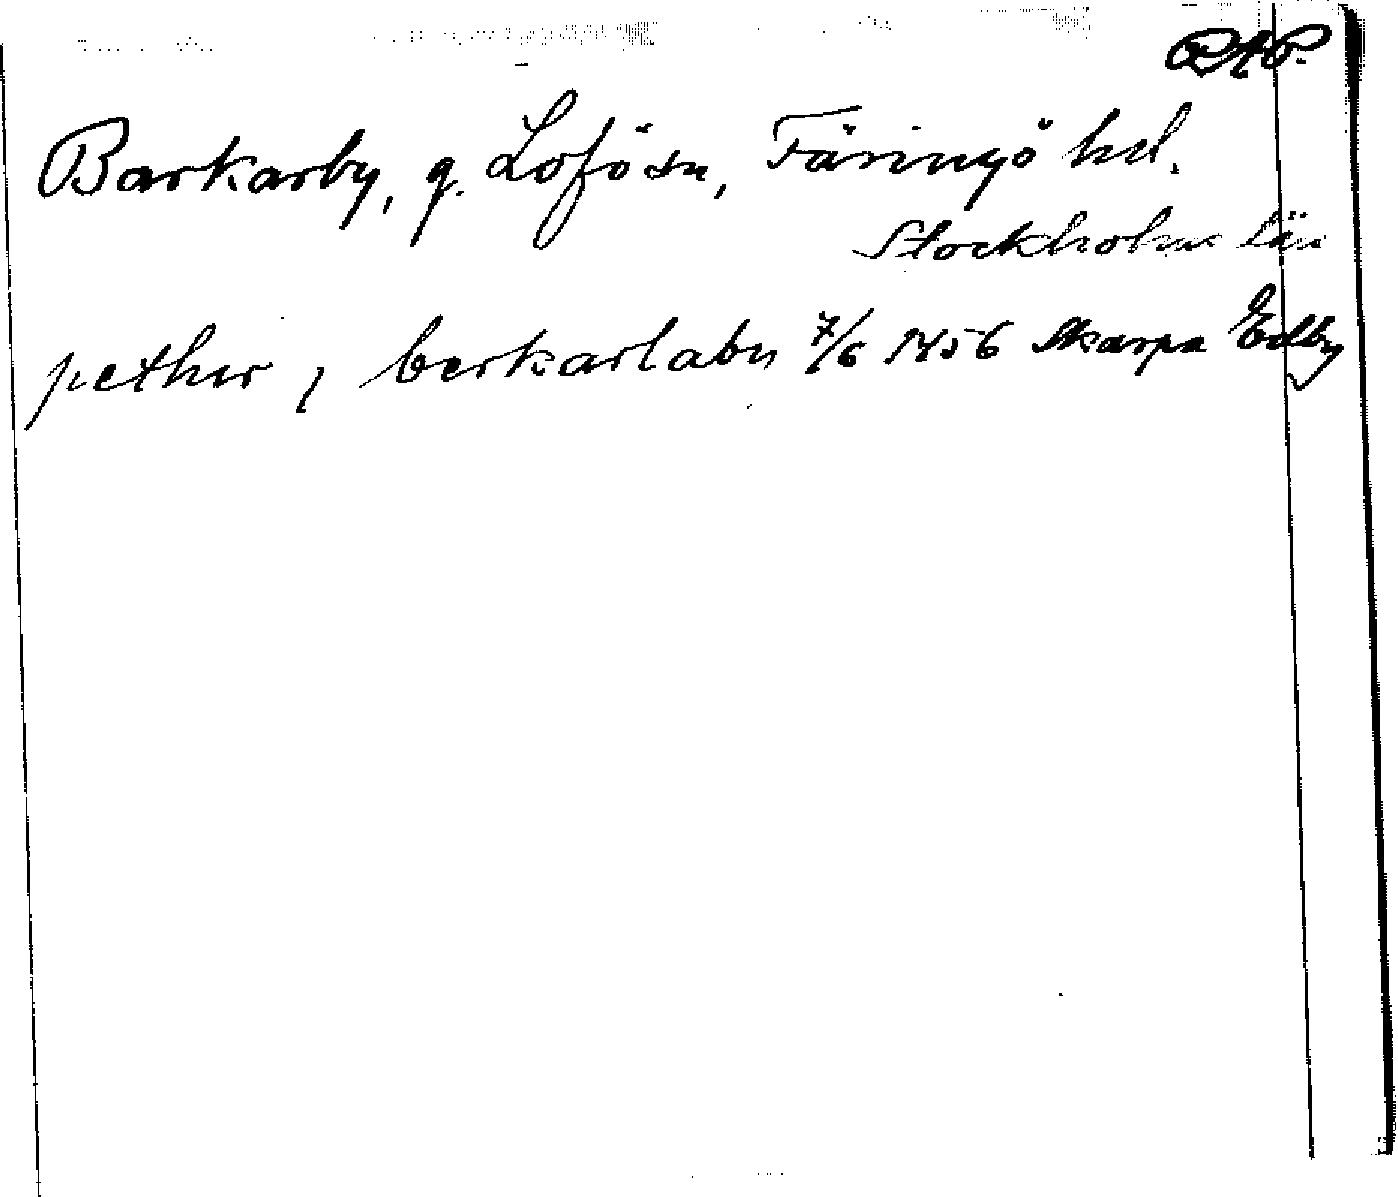 RAP.
Barkarby, g. Lofö sn, Färingö hd.
Stockholms län
pether j berkarlaby 7/6 1456 Skarpa Edby